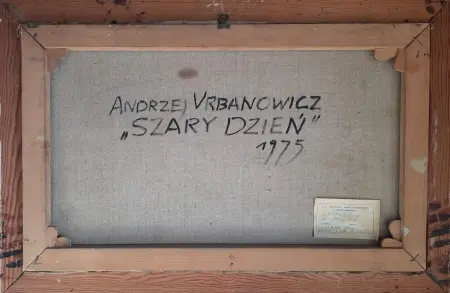 ANDRZEJ VRBANOWICZ
„SZARY DZIEŃ”
1975